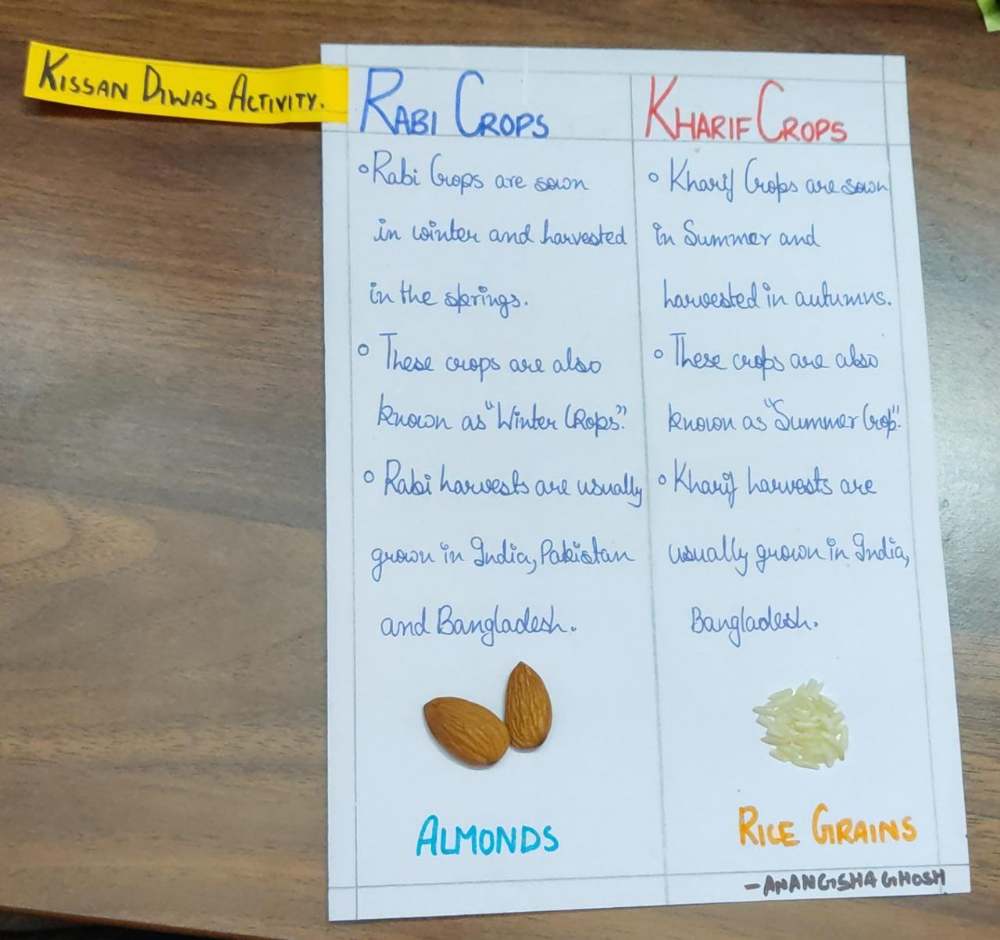 KISSAN DIWAS ACTIVITY.
RABI CROPS
Rabi Crops are sown
in winter and harvested
in the springs.
These crops are also
known as "Winter CRops".
Rabi harvests are usually
grown in India, Pakistan
and Bangladesh.
ALMONDS
KHARIF CROPS
Kharif Crops are sown
in Summer and
harvested in autumns.
These crops are also
known as "Summer Crop".
Kharif harvests are
usually grown in India,
Bangladesh.
RICE GRAINS
- ANANGSHA GHOSH